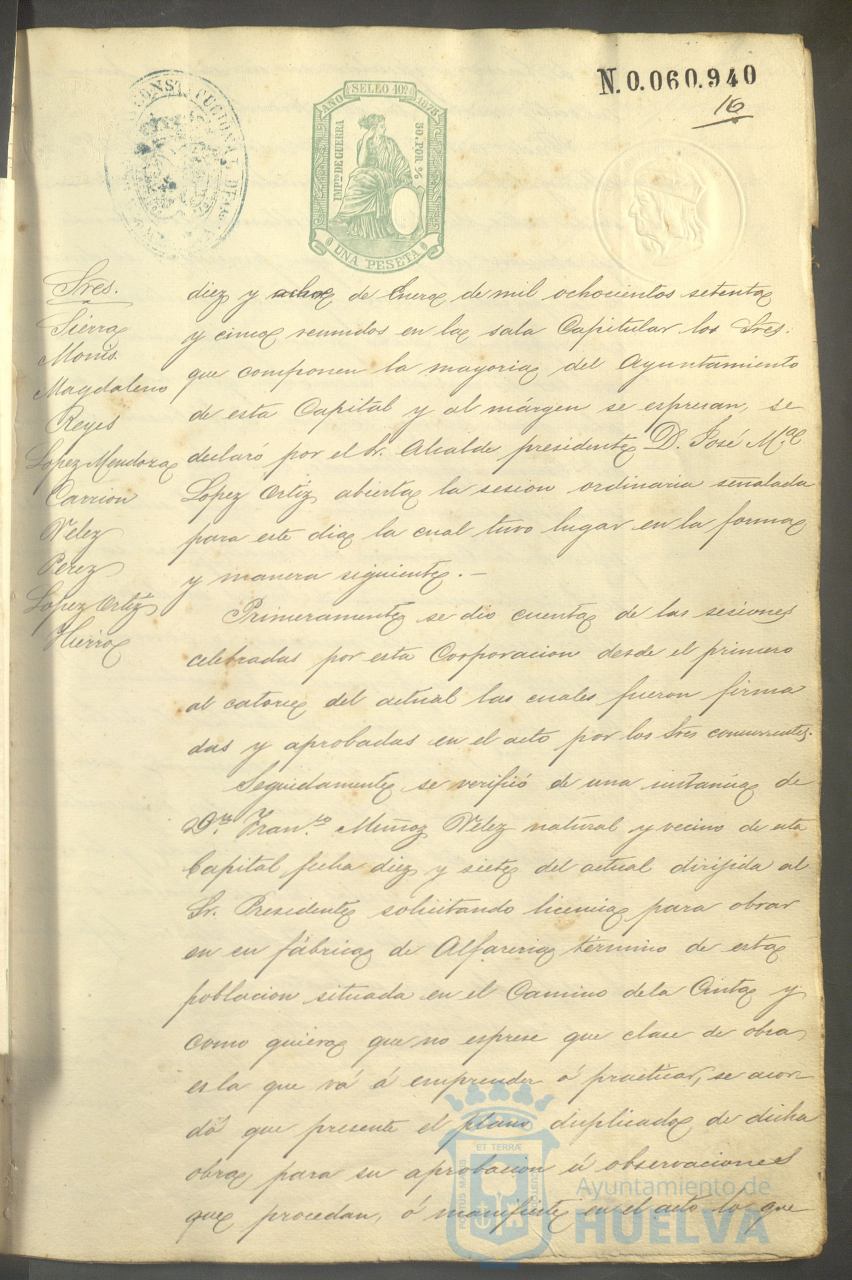 N. 0.060.940
16
CONSTITUCIONAL DE
AÑO SELLO 10º 1875
IMPTO DE GUERRA
50 POR %
UNA PESETA
Sres.
Sierra
Monis
Magdaleno
Reyes
Lopez Mendoza
Carrion
Velez
Perez
Lopez Ortiz
Hierro
diez y ocho de Enero de mil ochocientos setenta
y cinco reunidos en la sala Capitular los Sres.
que componen la mayoria del Ayuntamiento
de esta Capital y al márgen se espresan, se
declaró por el Sr. Alcalde presidente D. José Mª
Lopez Ortiz abierta la sesion ordinaria señalada
para este dia la cual tuvo lugar en la forma
y manera siguiente. —
Primeramente se dio cuenta de las sesiones
celebradas por esta Corporacion desde el primero
al catorce del actual las cuales fueron firma
das y aprobadas en el acto por los Sres concurrentes.
Seguidamente se verificó de una instancia de
Dn. Franco Muñoz Velez natural y vecino de esta
Capital fecha diez y siete del actual dirijida al
Sr. Presidente solicitando licencia para obrar
en su fábrica de Alfareria término de esta
poblacion situada en el Camino de la Cinta y
como quiera que no esprese que clase de obra
es la que vá á emprender ó practicar, se acor
dó que presente el plano duplicado de dicha
obra para su aprobacion ú observaciones
que procedan, ó manifieste en el acto lo que
PORTUS MARIS ET TERRÆ CUSTODIA
Ayuntamiento de
HUELVA